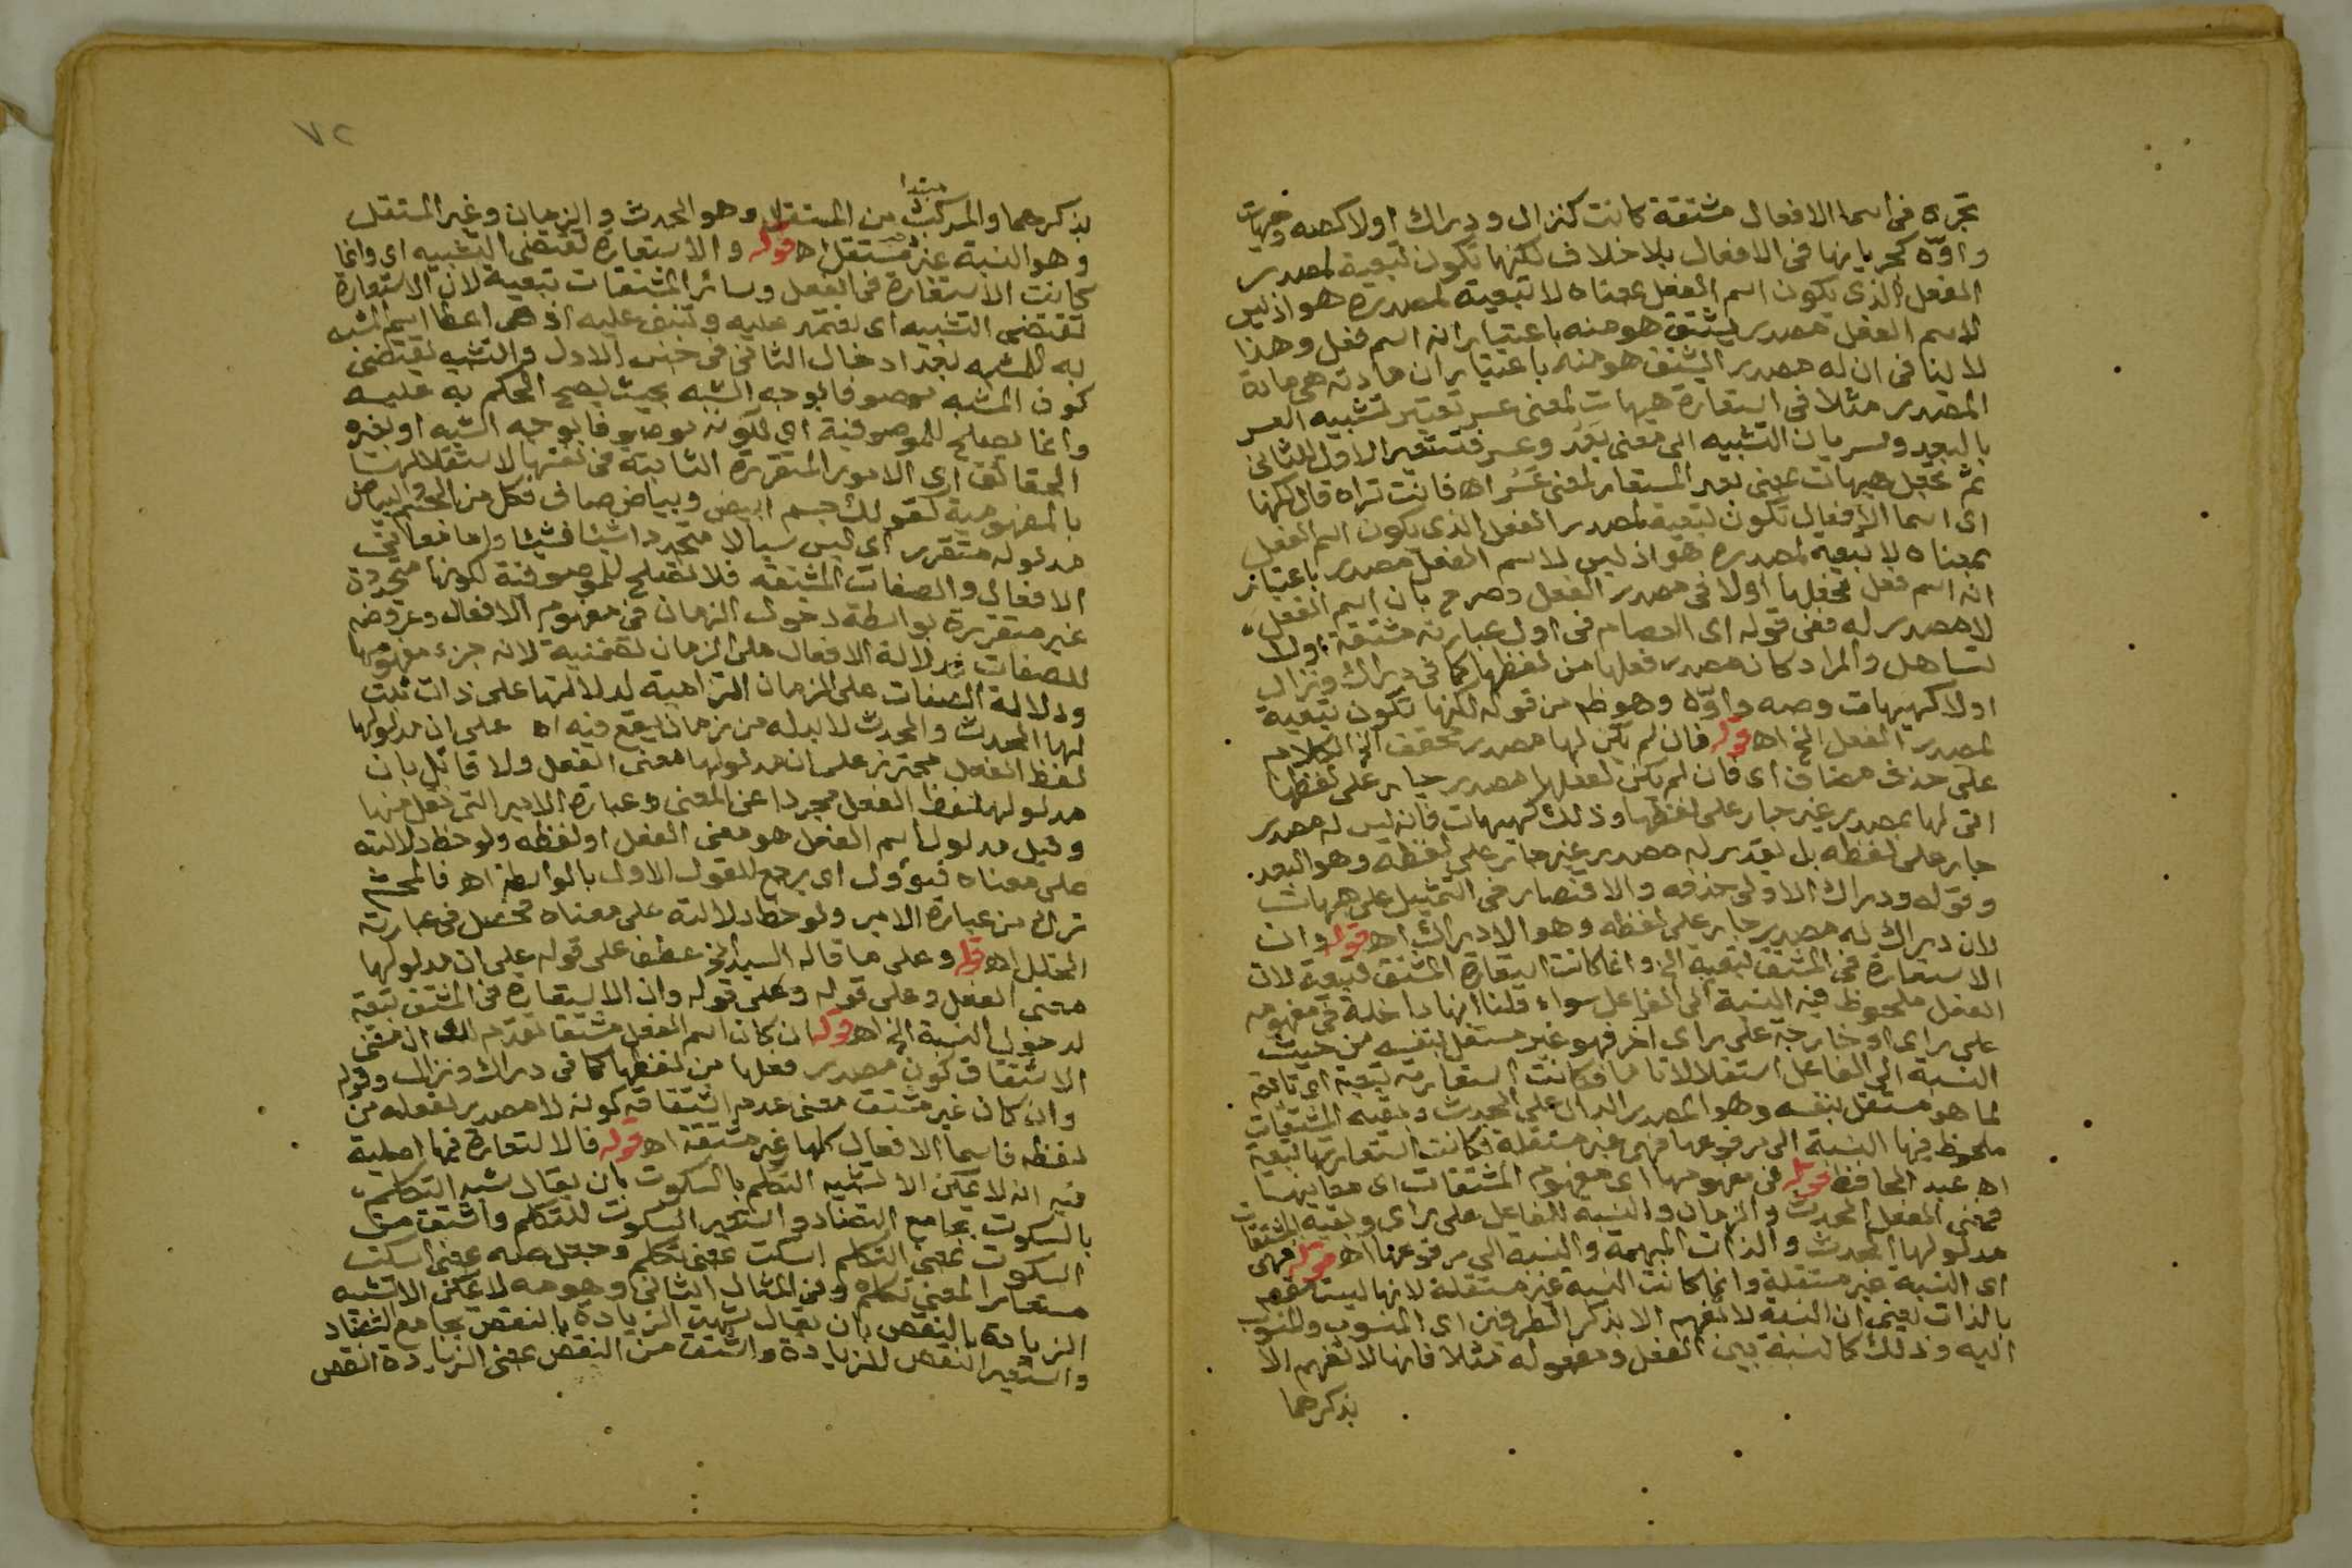 تجره فى اسما الافعال مشتقة كانت كنزال ودراك اولا كصه وهيهات
واوّه كجريانها فى الافعال بلا خلاف لكنها تكون تبعية لمصدر
الفعل الذى يكون اسم الفعل بمعناه لا تبعية لمصدره هو اذ ليس
لاسم الفعل مصدر يشتق هو منه باعتبار انه اسم فعل وهذا
لا ينافى ان له مصدر اشتق هو منه باعتبار ان مادته هى مادة
المصدر مثلا فى استعارة هيهات لمعنى عسر تعتبر تشبيه العسر
بالبعد وسريان التشبيه الى معنى بَعُد وعسر فتستعير الاول للثانى
ثم تجعل هيهات بمعنى بعد المستعار لمعنى عَسُر اه فانت تراه قال لكنها
اى اسما الافعال تكون تبعية لمصدر الفعل الذى يكون اسم الفعل
بمعناه لا تبعية لمصدره هو اذ ليس لاسم الفعل مصدر باعتبار
انه اسم فعل فجعلها اولا فى مصدر الفعل وصرح بان اسم الفعل
لا مصدر له ففى قوله اى العصام فى اول عبارته مشتقة اولا
تساهل والمراد كان مصدر فعلها من لفظها كما فى دراك ونزال
اولا كهيهات وصه واوّه وهو ظ من قوله لكنها تكون تبعية
لمصدر الفعل الخ اه قوله فان لم يكن لها مصدر محقق الخ الكلام
على حذف مضاف اى فان لم يكن لفعلها مصدر جار على لفظها
اتى لها بمصدر غير جار على لفظها وذلك كهيهات فانه ليس له مصدر
جار على لفظه بل يقدر له مصدر غير جار على لفظه وهو البعد
وقوله ودراك الاولى حذفه والاقتصار فى التمثيل على هيهات
لان دراك له مصدر جار على لفظه وهو الادراك اه قوله وان
الاستعارة فى المشتق تبعية الخ وانما كانت استعارة المشتق تبعية لان
الفعل ملحوظ فيه النسبة الى الفاعل سواء قلنا انها داخلة فى مفهومه
على راى او خارجة على راى اخر فهو غير مستقل بنفسه من حيث
النسبة الى الفاعل استقلالا تاما فكانت استعارته تبعية اى تابعة
لما هو مستقل بنفسه وهو المصدر الدال على الحدث وبقية المشتقات
ملحوظ فيها النسبة الى مرفوعها فهى غير مستقلة فكانت استعارتها تبعية
اه عبد الحافظ قوله فى مفهومها اى مفهوم المشتقات اى معانيها
فمعنى الفعل الحدث والزمان والنسبة للفاعل على راى وبقية المشتقات
مدلولها الحدث والذات المبهمة والنسبة الى مرفوعها اه قوله فهى
اى النسبة غير مستقلة وانما كانت النسبة غير مستقلة لانها ليست تفهم
بالذات يعنى ان النسبة لا تفهم الا بذكر الطرفين اى المنسوب والمنسوب
اليه وذلك كالنسبة بين الفعل ومفعوله مثلا فانها لا تفهم الا
بذكرهما
٧٢
مبتدا
بذكرهما والمركب من المستقل وهو الحدث والزمان وغير المستقل
وهو النسبة غير مستقل اه قوله والاستعارة تقتضى التشبيه اى وانما
كانت الاستعارة فى الفعل وسائر المشتقات تبعية لان الاستعارة
تقتضى التشبيه اى تعتمد عليه وتبنى عليه اذ هى اعطا اسم المشبه
به للمشبه بعد ادخال الثانى فى جنس الاول والتشبيه يقتضى
كون المشبه موصوفا بوجه الشبه بحيث يصح الحكم به عليه
وانما يصلح للموصوفية اى لكونه موصوفا بوجه الشبه او بغيره
الحقائق اى الامور المتقررة الثابتة فى نفسها لاستقلالها
بالمفهومية كقولك جسم ابيض وبياض صاف فكل من الجسم والبياض
مدلوله متقرر اى ليس سيالا متجددا شيئا فشيئا واما معانى
الافعال والصفات المشتقة فلا تصلح للموصوفية لكونها متجددة
غير متقررة بواسطة دخول الزمان فى مفهوم الافعال وعروضه
للصفات فدلالة الافعال على الزمان تضمنية لانه جزء مفهومها
ودلالة الصفات على الزمان التزامية لدلالتها على ذات ثبت
لها الحدث والحدث لا بد له من زمان يقع فيه اه على ان مدلولها
لفظ الفعل محترز على ان مدلولها معنى الفعل ولا قائل بان
مدلولها لفظ الفعل مجردا عن المعنى وعبارة الامير التى نقل منها
وقيل مدلول اسم الفعل هو معنى الفعل او لفظه ولوحظ دلالته
على معناه فيؤول اى يرجع للقول الاول بالواسطة اه فالمحشى
ترك من عبارة الامير ولوحظ دلالته على معناه فحصل فى عبارته
الخلل اه قوله وعلى ما قاله السيد الخ عطف على قوله على ان مدلولها
معنى الفعل وعلى قوله وعلى قوله وان الاستعارة فى المشتق تبعية
لدخول النسبة الخ اه قوله ان كان اسم الفعل مشتقا تقدم لك ان معنى
الاشتقاق كون مصدر فعلها من لفظها كما فى دراك ونزال وقوله
وان كان غير مشتق معنى عدم اشتقاقه كونه لا مصدر لفعله من
لفظه فاسما الافعال كلها غير مشتقة اه قوله فالاستعارة فيها اصلية
فيه انه لا يمكن الا تشبيه التكلم بالسكوت بان يقال شبه التكلم
بالسكوت بجامع التضاد واستعير السكوت للتكلم واشتق من
السكوت بمعنى التكلم اسكت بمعنى تكلم وجعل صه بمعنى اسكت
مستعارا لمعنى تكلم وفى المثال الثانى وهو مه لا يمكن الا تشبيه
الزيادة بالنقص بان يقال شبهت الزيادة بالنقص بجامع التضاد
واستعير النقص للزيادة واشتق من النقص بمعنى الزيادة انقص